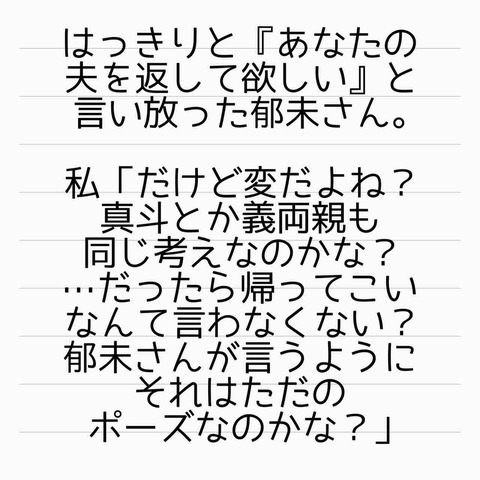 はっきりと『あなたの
夫を返して欲しい』と
言い放った郁未さん。
私「だけど変だよね？
真斗とか義両親も
同じ考えなのかな？
…だったら帰ってこい
なんて言わなくない？
郁未さんが言うように
それはただの
ポーズなのかな？」